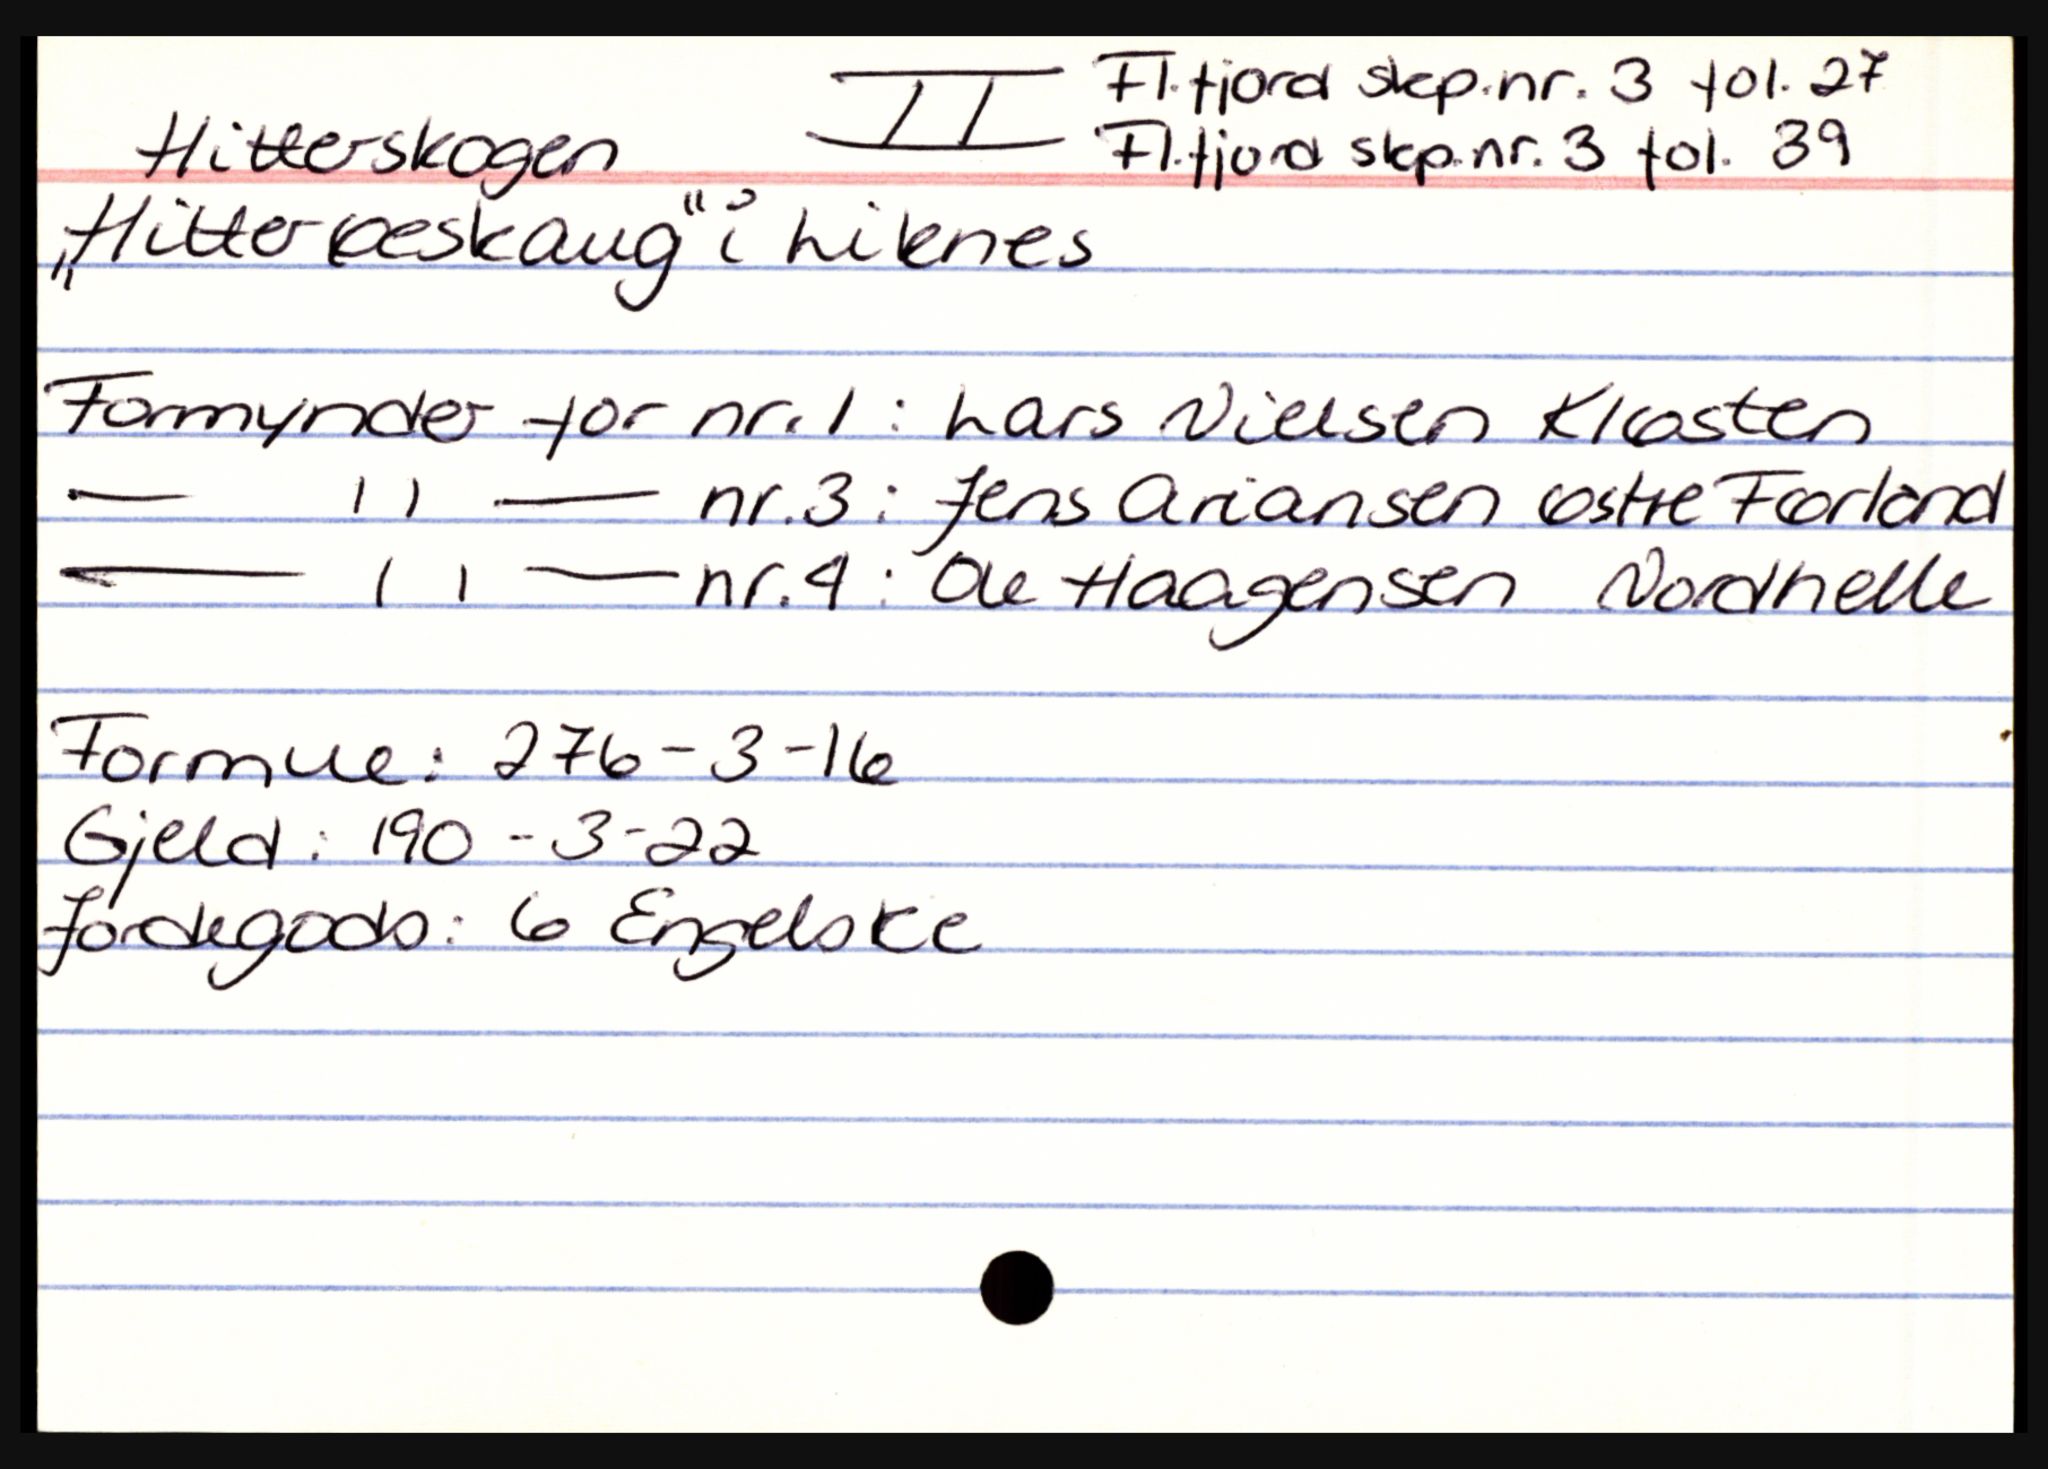 Hitterskogen II Fl.fjord skp.nr. 3 fol. 27
Fl.fjord skp.nr. 3 fol. 39
„Hitterøeskaug“ i Liknes
Formynder for nr. 1 : Lars Nielsen Kløsten
— " — nr. 3 : Jens Ariansen østre Førland
— " — nr. 4 : Ole Haagensen Nordhelle
Formue : 276 - 3 - 16
Gjeld : 190 - 3 - 22
Jordegods : 6 Engelske